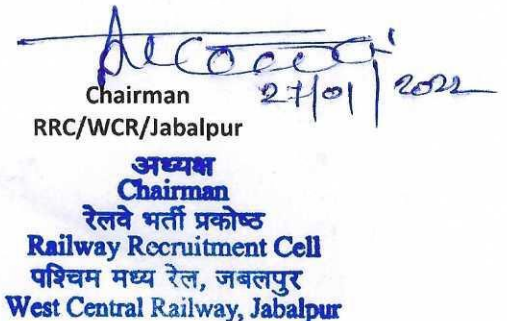 27/01/2022
Chairman
RRC/WCR/Jabalpur
अध्यक्ष
Chairman
रेलवे भर्ती प्रकोष्ठ
Railway Recruitment Cell
पश्चिम मध्य रेल, जबलपुर
West Central Railway, Jabalpur